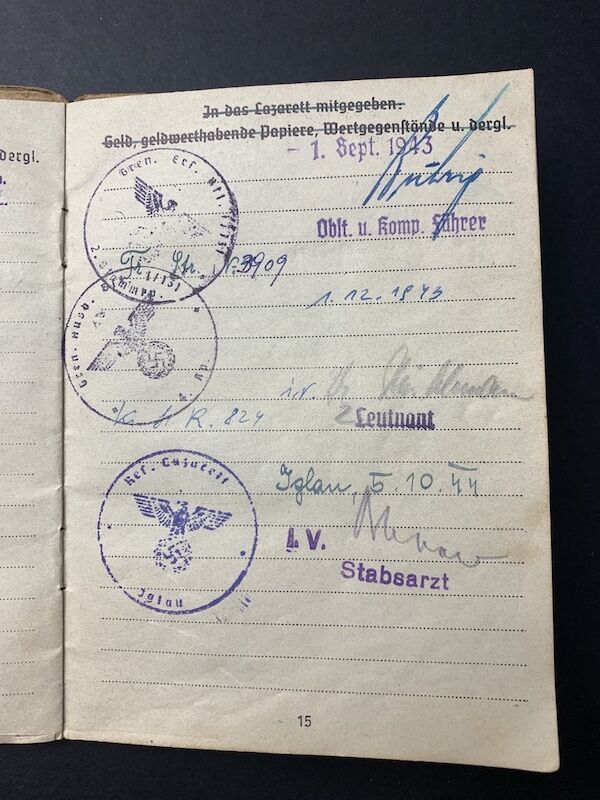 dergl.
In das Lazarett mitgegeben.
Geld, geldwerthabende Papiere, Wertgegenstände u. dergl.
- 1. Sept. 1943
Gren. Ers. Btl. I/131
2. Komp.
Oblt. u. Komp. Führer
Tr. Str. Nr. 3909
1.12.1943
Gren. Ausb.
i.V. Dr.
Kr. St. R. 824
Leutnant
Res. Lazarett
Iglau
Iglau, 5.10.44
I. V.
Stabsarzt
15